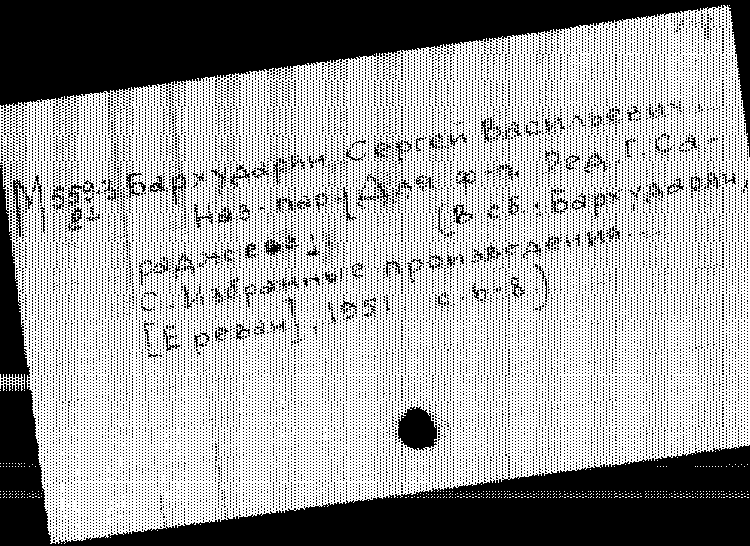 М 5593 Бархударян, Сергей Васильевич.
81 Наз-пар. [Для ф-п. Ред. Г. Са-
раджев]. (В сб.: Бархударян,
С. Избранные произведения...
[Ереван], 1951 с. 6-8)